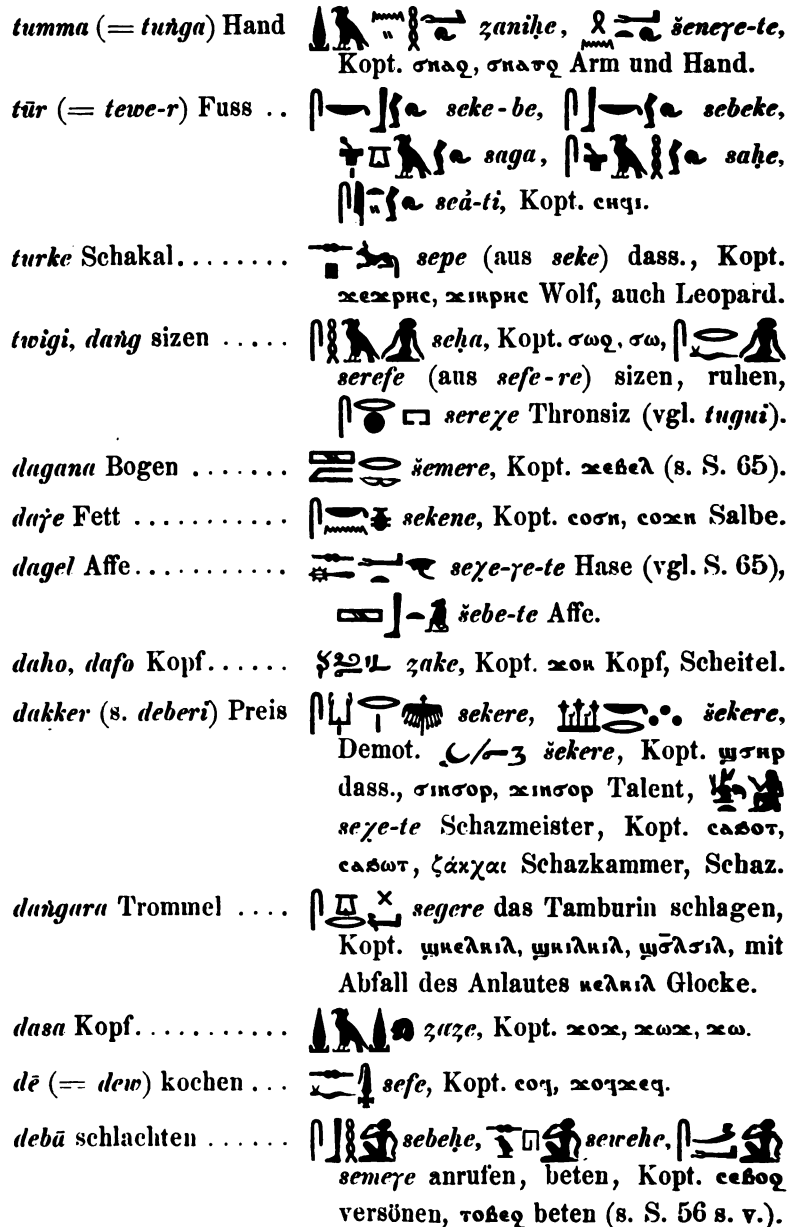 tumma (= tuṅga) Hand zaniḥe, šeneγe-te,
Kopt. ϭⲛⲁϩ, ϭⲛⲁⲧϩ Arm und Hand.
tūr (= tewe-r) Fuss .. seke-be, sebeke,
saga, saḥe,
seȧ-ti, Kopt. ⲥⲏϥⲓ.
turke Schakal........ sepe (aus seke) dass., Kopt.
ϫⲉϫⲣⲏⲥ, ϫⲓⲕⲣⲏⲥ Wolf, auch Leopard.
twigi, daṅg sizen ..... seḥa, Kopt. ϭⲱϩ, ϭⲱ,
serefe (aus sefe-re) sizen, ruhen,
sereχe Thronsiz (vgl. tugui).
dagana Bogen ....... šemere, Kopt. ϫⲉⲃⲉⲗ (s. S. 65).
daγ̇e Fett ........... sekene, Kopt. ⲥⲟϭⲛ, ⲥⲟϫⲛ Salbe.
dagel Affe........... seχe-γe-te Hase (vgl. S. 65),
šebe-te Affe.
daho, dafo Kopf...... zake, Kopt. ϫⲟⲕ Kopf, Scheitel.
dakker (s. deberi) Preis sekere, šekere,
Demot. šekere, Kopt. ϣϭⲏⲣ
dass., ϭⲓⲛϭⲟⲣ, ϫⲓⲛϭⲟⲣ Talent,
seχe-te Schazmeister, Kopt. ⲥⲁⲃⲟⲧ,
ⲥⲁⲃⲱⲧ, ζάκχαι Schazkammer, Schaz.
daṅgara Trommel .... segere das Tamburin schlagen,
Kopt. ϣⲕⲉⲗⲕⲓⲗ, ϣⲕⲓⲗⲕⲓⲗ, ϣϭ̄ⲗϭⲓⲗ, mit
Abfall des Anlautes ⲕⲉⲗⲕⲓⲗ Glocke.
dasa Kopf........... zaze, Kopt. ϫⲟϫ, ϫⲱϫ, ϫⲱ.
dē (= dew) kochen ... sefe, Kopt. ⲥⲟϥ, ϫⲟϥϫⲉϥ.
debā schlachten ...... sebeḥe, sewehe,
semeγe anrufen, beten, Kopt. ⲥⲉⲃⲟϩ
versönen, ⲧⲟⲃⲉϩ beten (s. S. 56 s. v.).